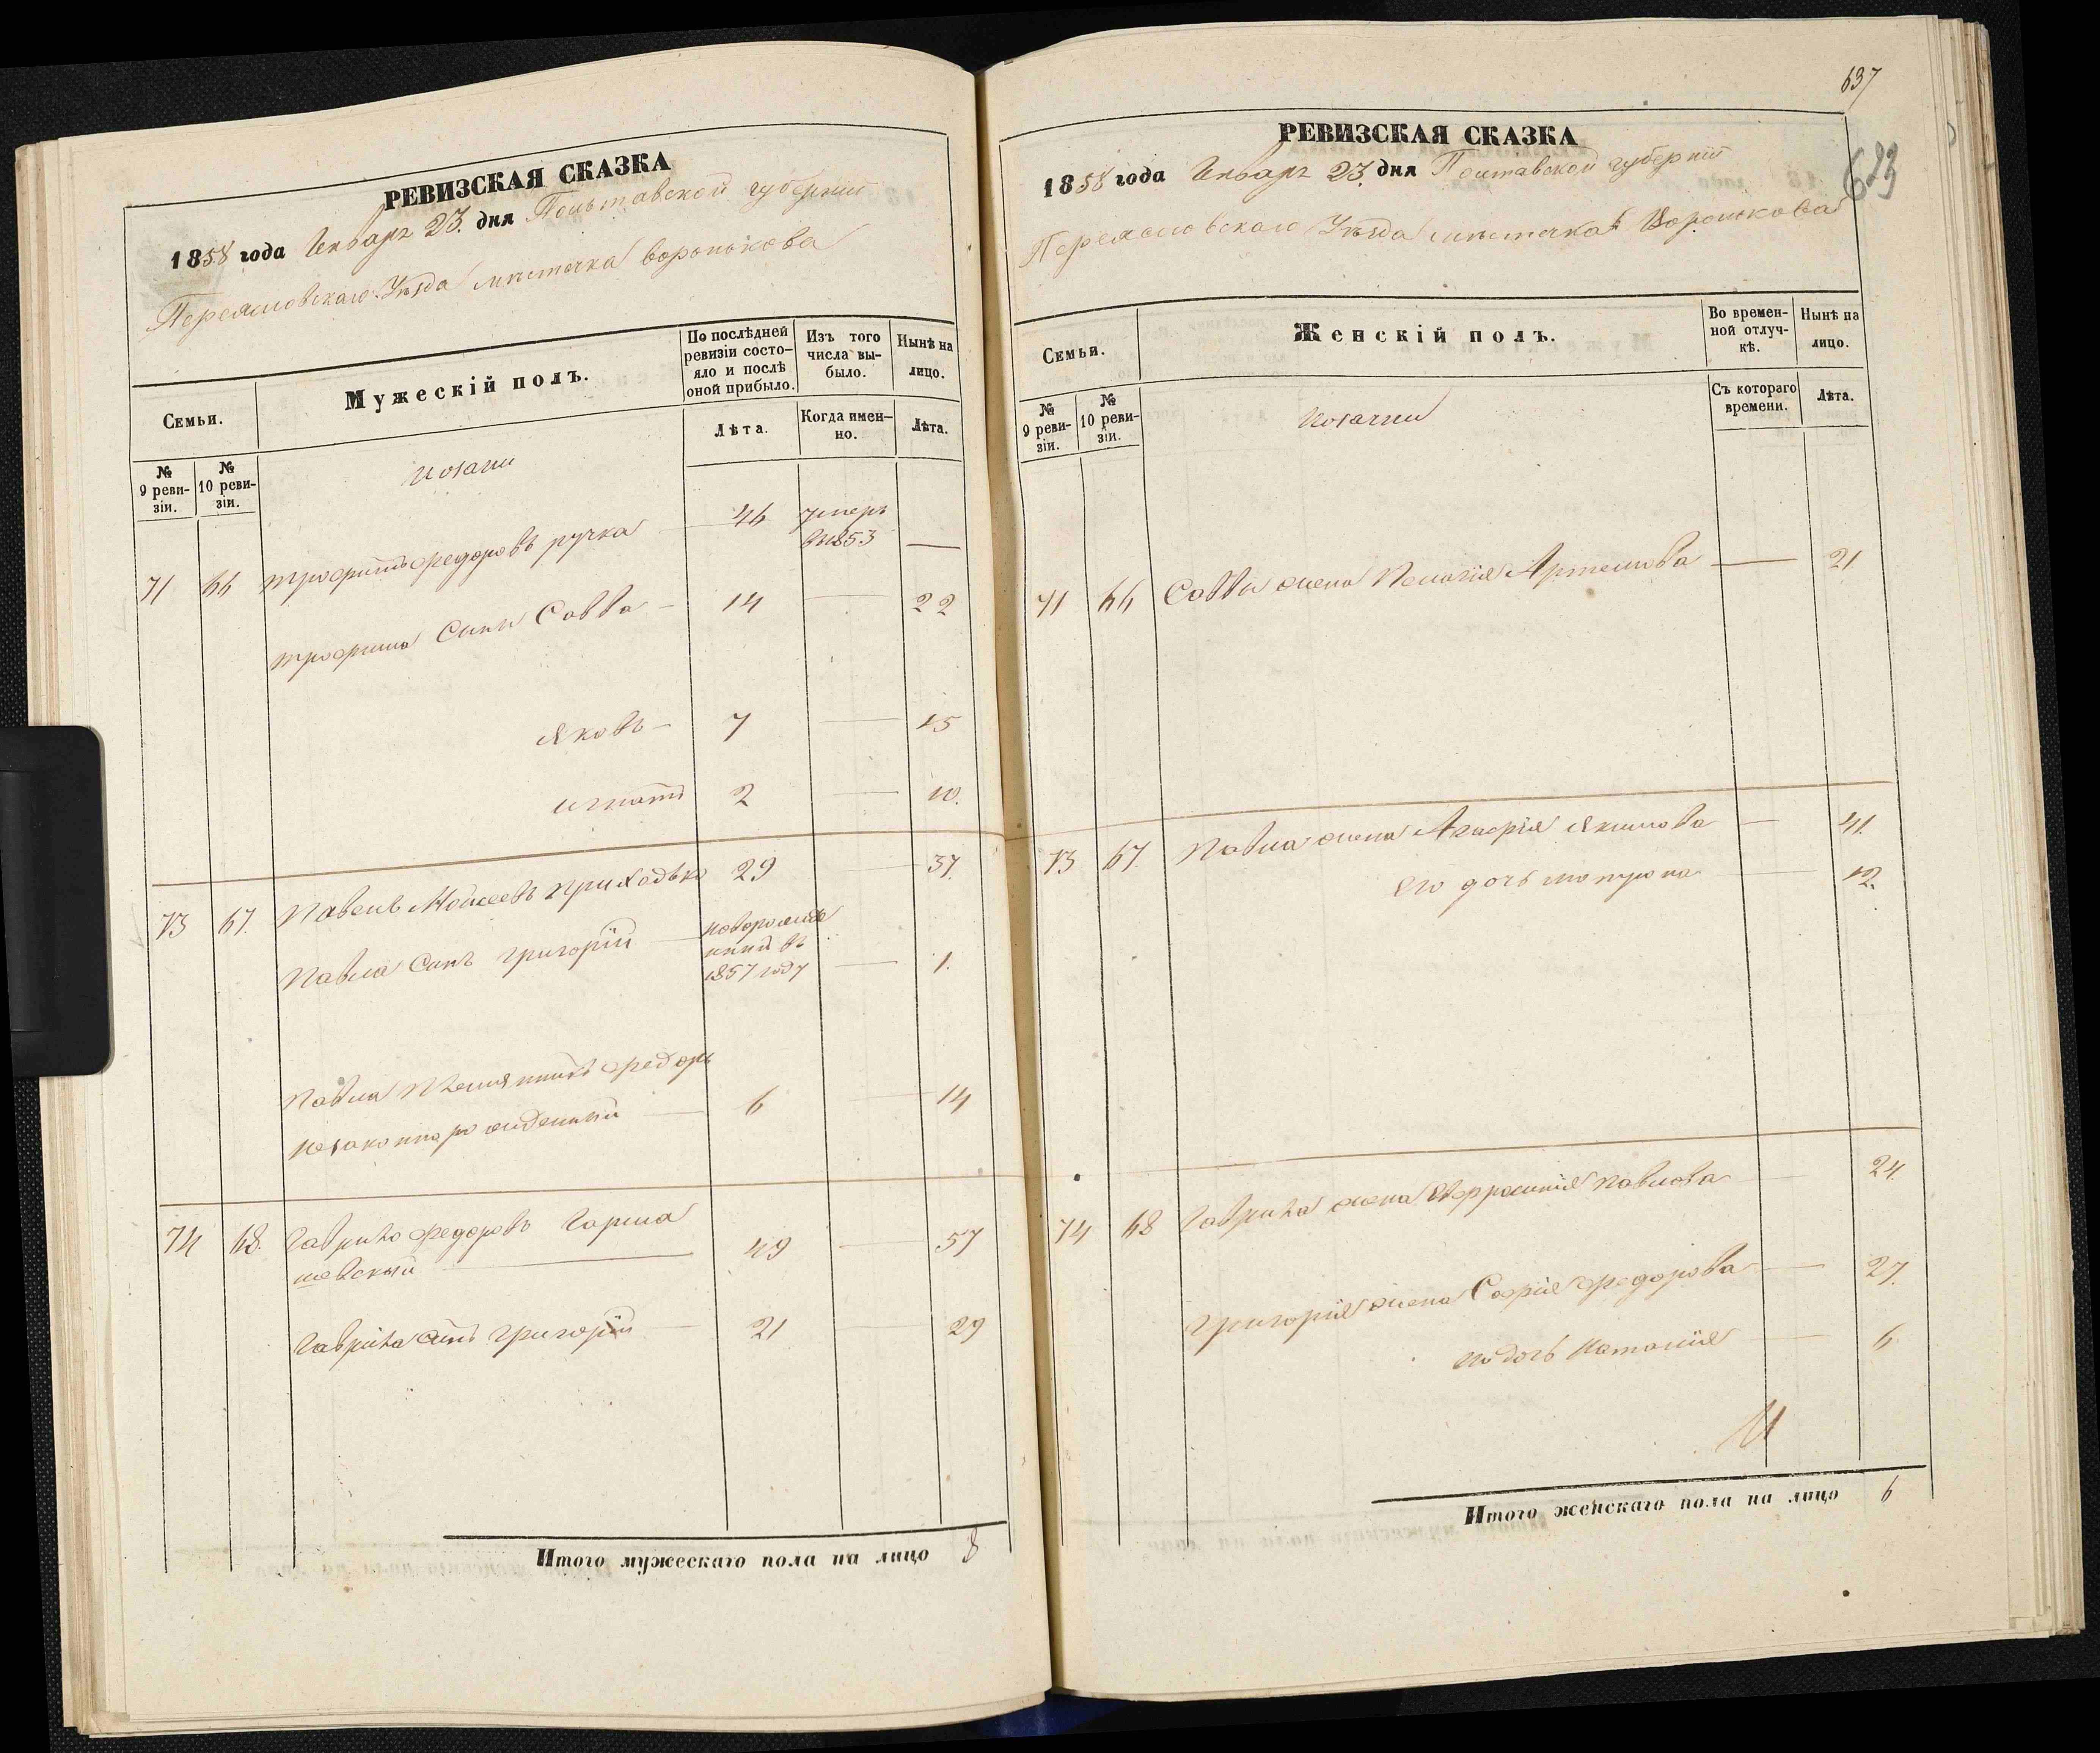 РЕВИЗСКАЯ СКАЗКА
1858 года Генваря 23. дня Полтавской губернiи
Переяславскаго Уѣзда мѣстечка Воронькова
Семьи.
Мужескій полъ.
По послѣдней ревизіи состо-
яло и послѣ
оной прибыло.
Изъ того
числа вы-
было.
Нынѣ на
лицо.
№
9 реви-
зіи.
№
10 реви-
зіи.
Лѣта.
Когда имен-
но.
Лѣта.
Козаки
71 66 Трофимъ Федоровъ ручка 46 умеръ
въ 1853 —
Трофима Сынъ Савва — 14 — 22
Яковъ — 7 — 15
Игнатъ 2 — 10.
73 67. Павелъ Моисеевъ Приходько 29 — 37.
Павла Сынъ григорiй новорожде
нный въ
1857 году — 1.
Павла Племянникъ Федоръ
незаконнорожденный — 6 — 14
74 68. Гаврило Федоровъ Гарма
шевскый — 49 — 57
Гаврила Сынъ григорiй — 21 — 29
Итого мужескаго пола на лицо 8
637
623
РЕВИЗСКАЯ СКАЗКА
1858 года Генваря 23. дня Полтавской губернiи
Переяславскаго Уѣзда мѣстечка Воронькова
Семьи.
Женскій полъ.
Во времен-
ной отлуч-
кѣ.
Нынѣ на
лицо.
№
9 реви-
зіи.
№
10 реви-
зіи.
Съ котораго
времени.
Лѣта.
Козачки
71 66 Саввы жена Пелагiя Артемова — 21
73 67. Павла жена Агафiя Якимова — 41.
Его дочь Матрона — 12.
74 68 Гаврила жена Евфросинiя Павлова — 24.
Григорiя жена Софiя Федорова — 27.
его дочь Наталiя — 6
Итого женскаго пола на лицо 6